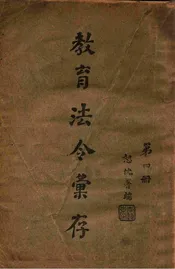 教育法令彙存
第四册